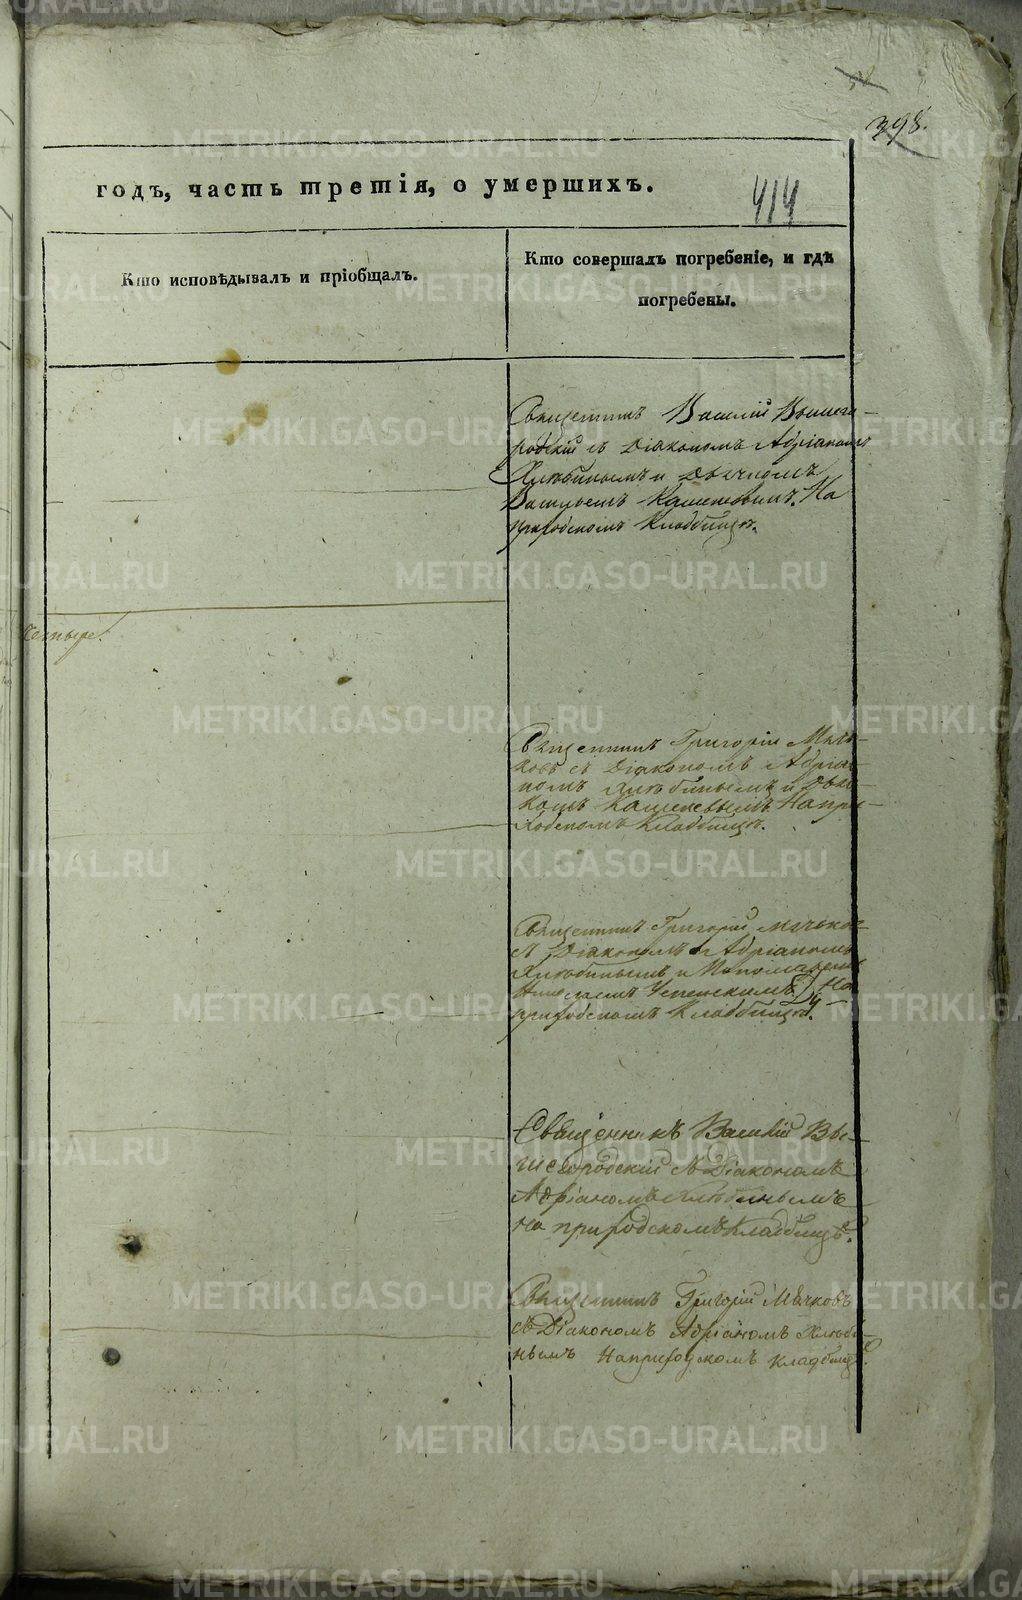 398.
годъ, часть третія, о умершихъ.
414
Кто исповѣдывалъ и пріобщалъ.
Кто совершалъ погребеніе, и гдѣ
погребены.
Священникъ Василій Вышего-
родскій съ Діакономъ Адріаномъ
Хлюбинымъ и Дьячкомъ
Васильемъ Кашеновымъ. На
приходскомъ Кладбищѣ.
Четыре.
Священникъ Григорій Мяч-
ковъ съ Діакономъ Адріа-
номъ Хлюбинымъ и Дьяч-
комъ Кашеневымъ На при-
ходскомъ Кладбищѣ.
Священникъ Григорій Мячковъ
съ Діакономъ Адріаномъ
Хлюбинымъ и Пономаремъ
Успенскимъ На
приходскомъ Кладбищѣ.
Священникъ Василій Вы-
шегородскій съ Діакономъ
Адріаномъ Хлюбинымъ
на приходскомъ Кладбищѣ.
Священникъ Григорій Мячковъ
съ Діакономъ Адріаномъ Хлюби-
нымъ На приходскомъ кладбищѣ.
METRIKI.GASO-URAL.RU